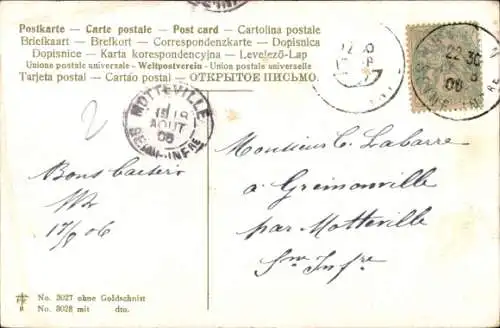 Postkarte — Carte postale — Post card — Cartolina postale
Briefkaart — Brefkort — Correspondenzkarte — Dopisnica
Dopisnice — Karta korespondencyjna — Levelező-Lap
Union postale universelle - Weltpostverein - Union postale universelle
Tarjeta postal — Cartão postal — ОТКРЫТОЕ ПИСЬМО.
2
MOTTEVILLE
AOUT
06
SEINE-INFRE
22 30
Bons baisers
17/8 06
Monsieur C. Labarre
à Gremonville
par Motteville
Sne Infre
No. 3027 ohne Goldschnitt
8 No. 3028 mit dto.